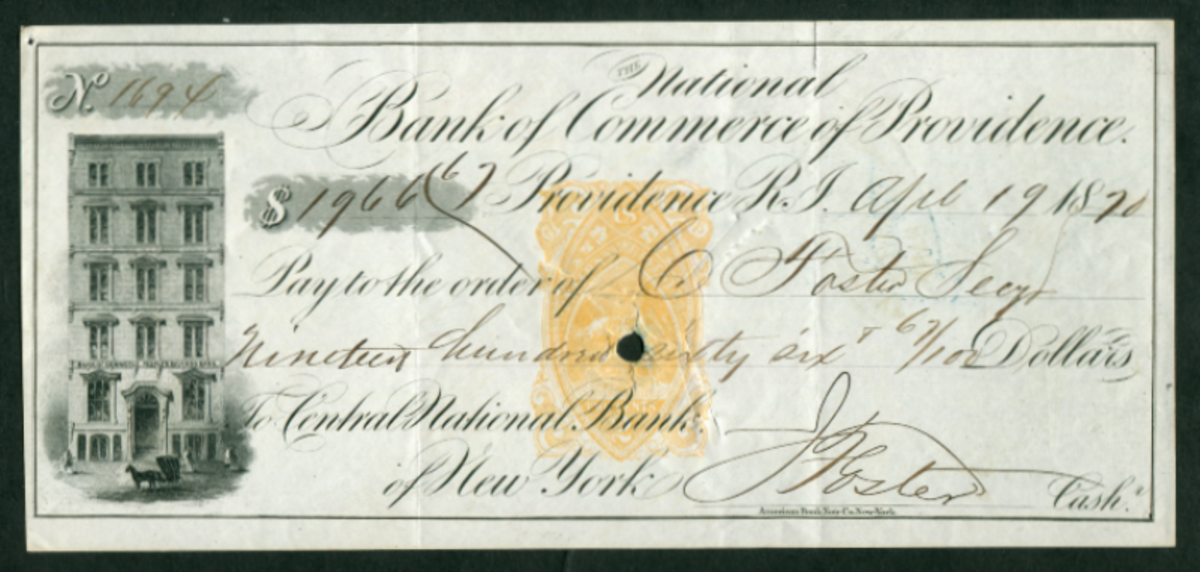 No. 1694
THE National
Bank of Commerce of Providence.
$ 1966 67 Providence R.I. Apl 19 1870
Pay to the order of C Foster Secy
Nineteen hundred sixty six + 67/100 Dollars
To Central National Bank
of New York J Foster Cash.r
American Bank Note Co. New York.